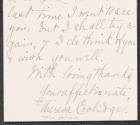 last time I went to see
you, but I shall try a-
gain, & I do think of you
& wish you well.
With loving thanks
Yours affectionately
Theresa Coolidge.